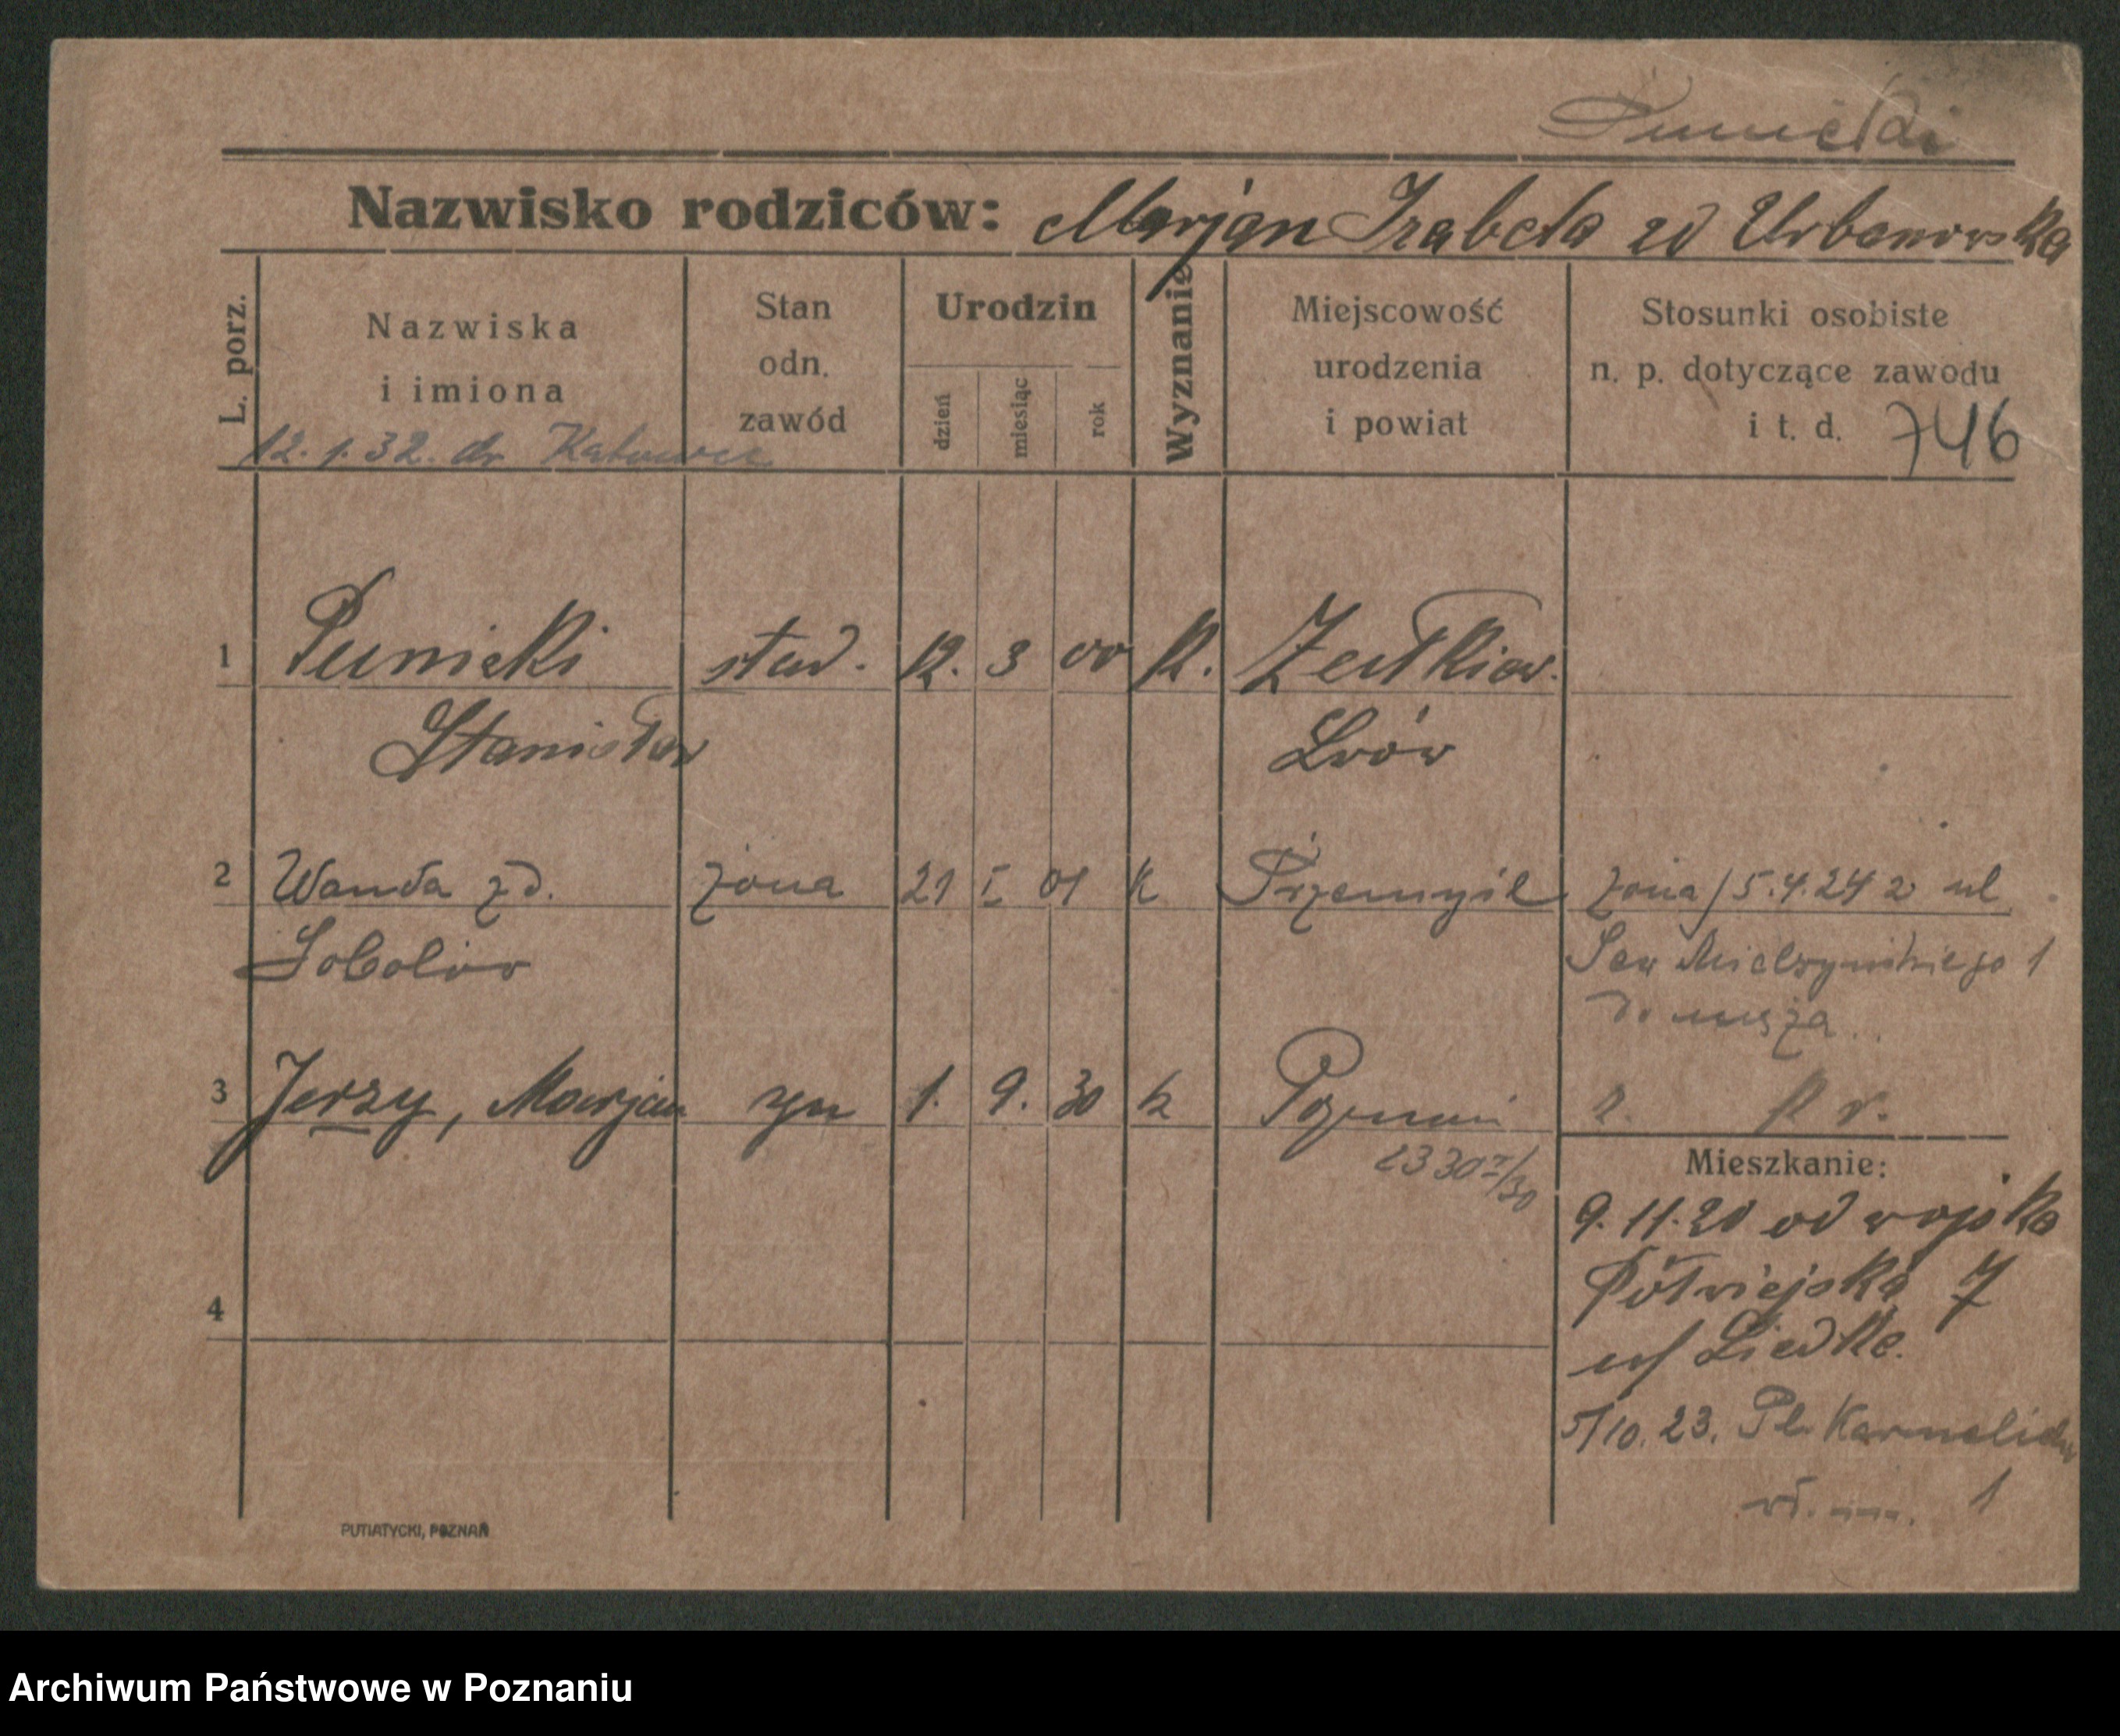 Punicki
Nazwisko rodziców: Marjan Izabela zd Urbanowska
L. porz.
Nazwiska
i imiona
Stan
odn.
zawód
Urodzin
dzień
miesiąc
rok
Wyznanie
Miejscowość
urodzenia
i powiat
Stosunki osobiste
n. p. dotyczące zawodu
i t. d. 746
12.1.32. do Katowic
1 Punicki stud. 12. 3 00 k.
Stanisław Lwów
2 Wanda zd. żona 21 I 01 k Przemyśl żona / 5.4.24 z ul
Sew Mielżyńskiego 1
do męża
3 Jerzy, Marjan syn 1. 9. 30 k Poznań
Mieszkanie:
9.11.20 od wojska
Półwiejska 7
Liedtke.
5/10.23. Pl. Karmelicki
1
4
PUTIATYCKI, POZNAŃ
Archiwum Państwowe w Poznaniu